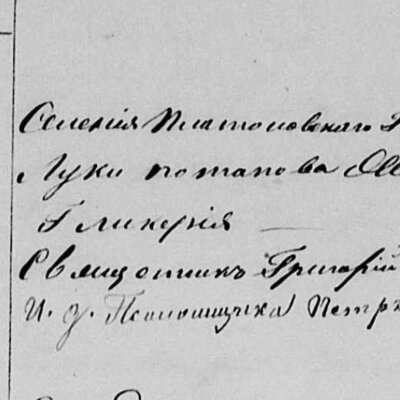 Селенія Платоновскаго
Луки Потапова
Гликерія
Священникъ Григорій
И. д. Псаломщика Петръ